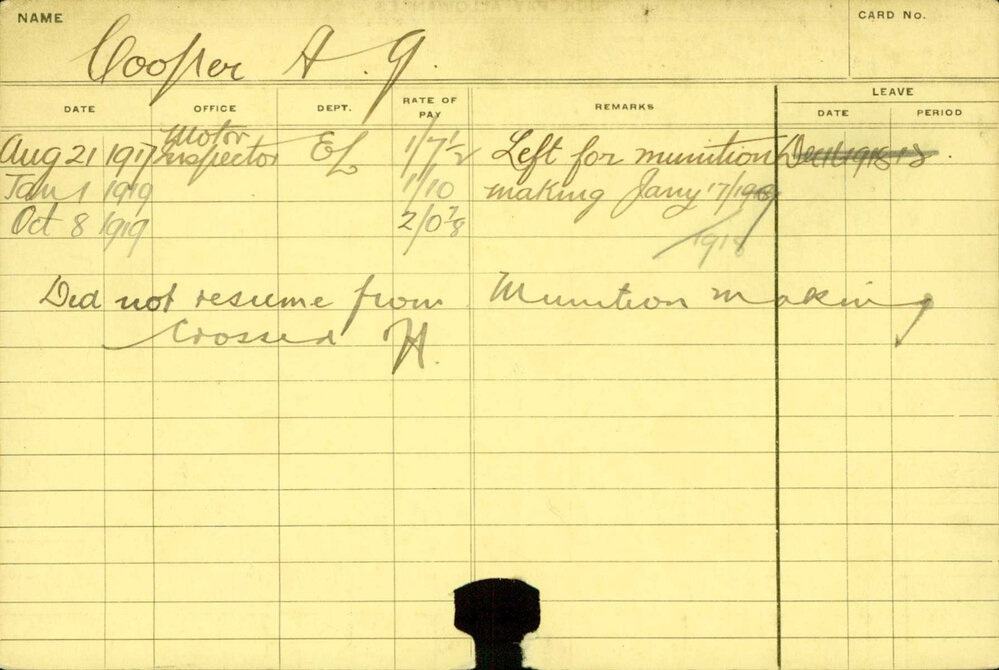 NAME
CARD No.
Cooper A. G.
DATE OFFICE DEPT. RATE OF PAY REMARKS LEAVE DATE PERIOD
Aug 21 1917 Motor Inspector EL 1/7½ Left for munition
Jan 1 1919 1/10 making Jany 17/
Oct 8 1919 2/0⅞ 1918
Did not resume from Munition making
Crossed H.